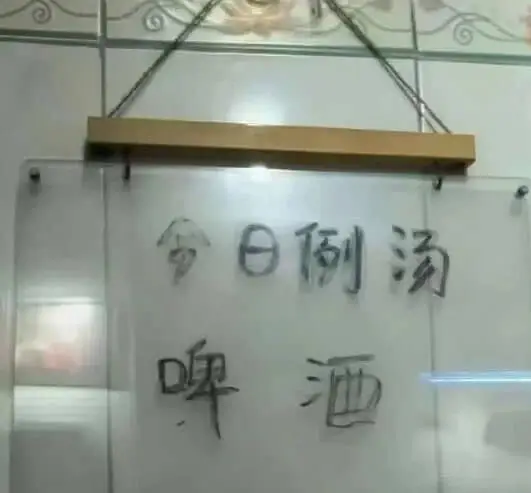 今日例汤
啤酒